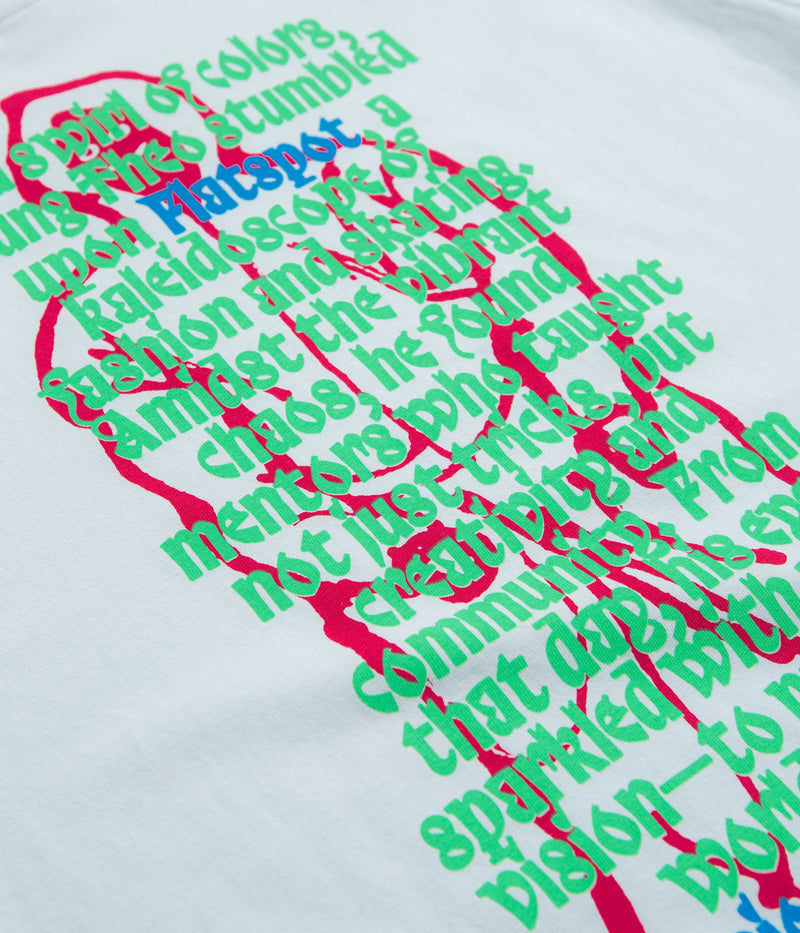 a swirl of colors,
ung Theo stumbled
upon Flatspot, a
kaleidoscope of
fashion and skating.
Amidst the vibrant
chaos, he found
mentors who taught
not just tricks, but
creativity and
community. From
that day, his
sparkled with
vision—to